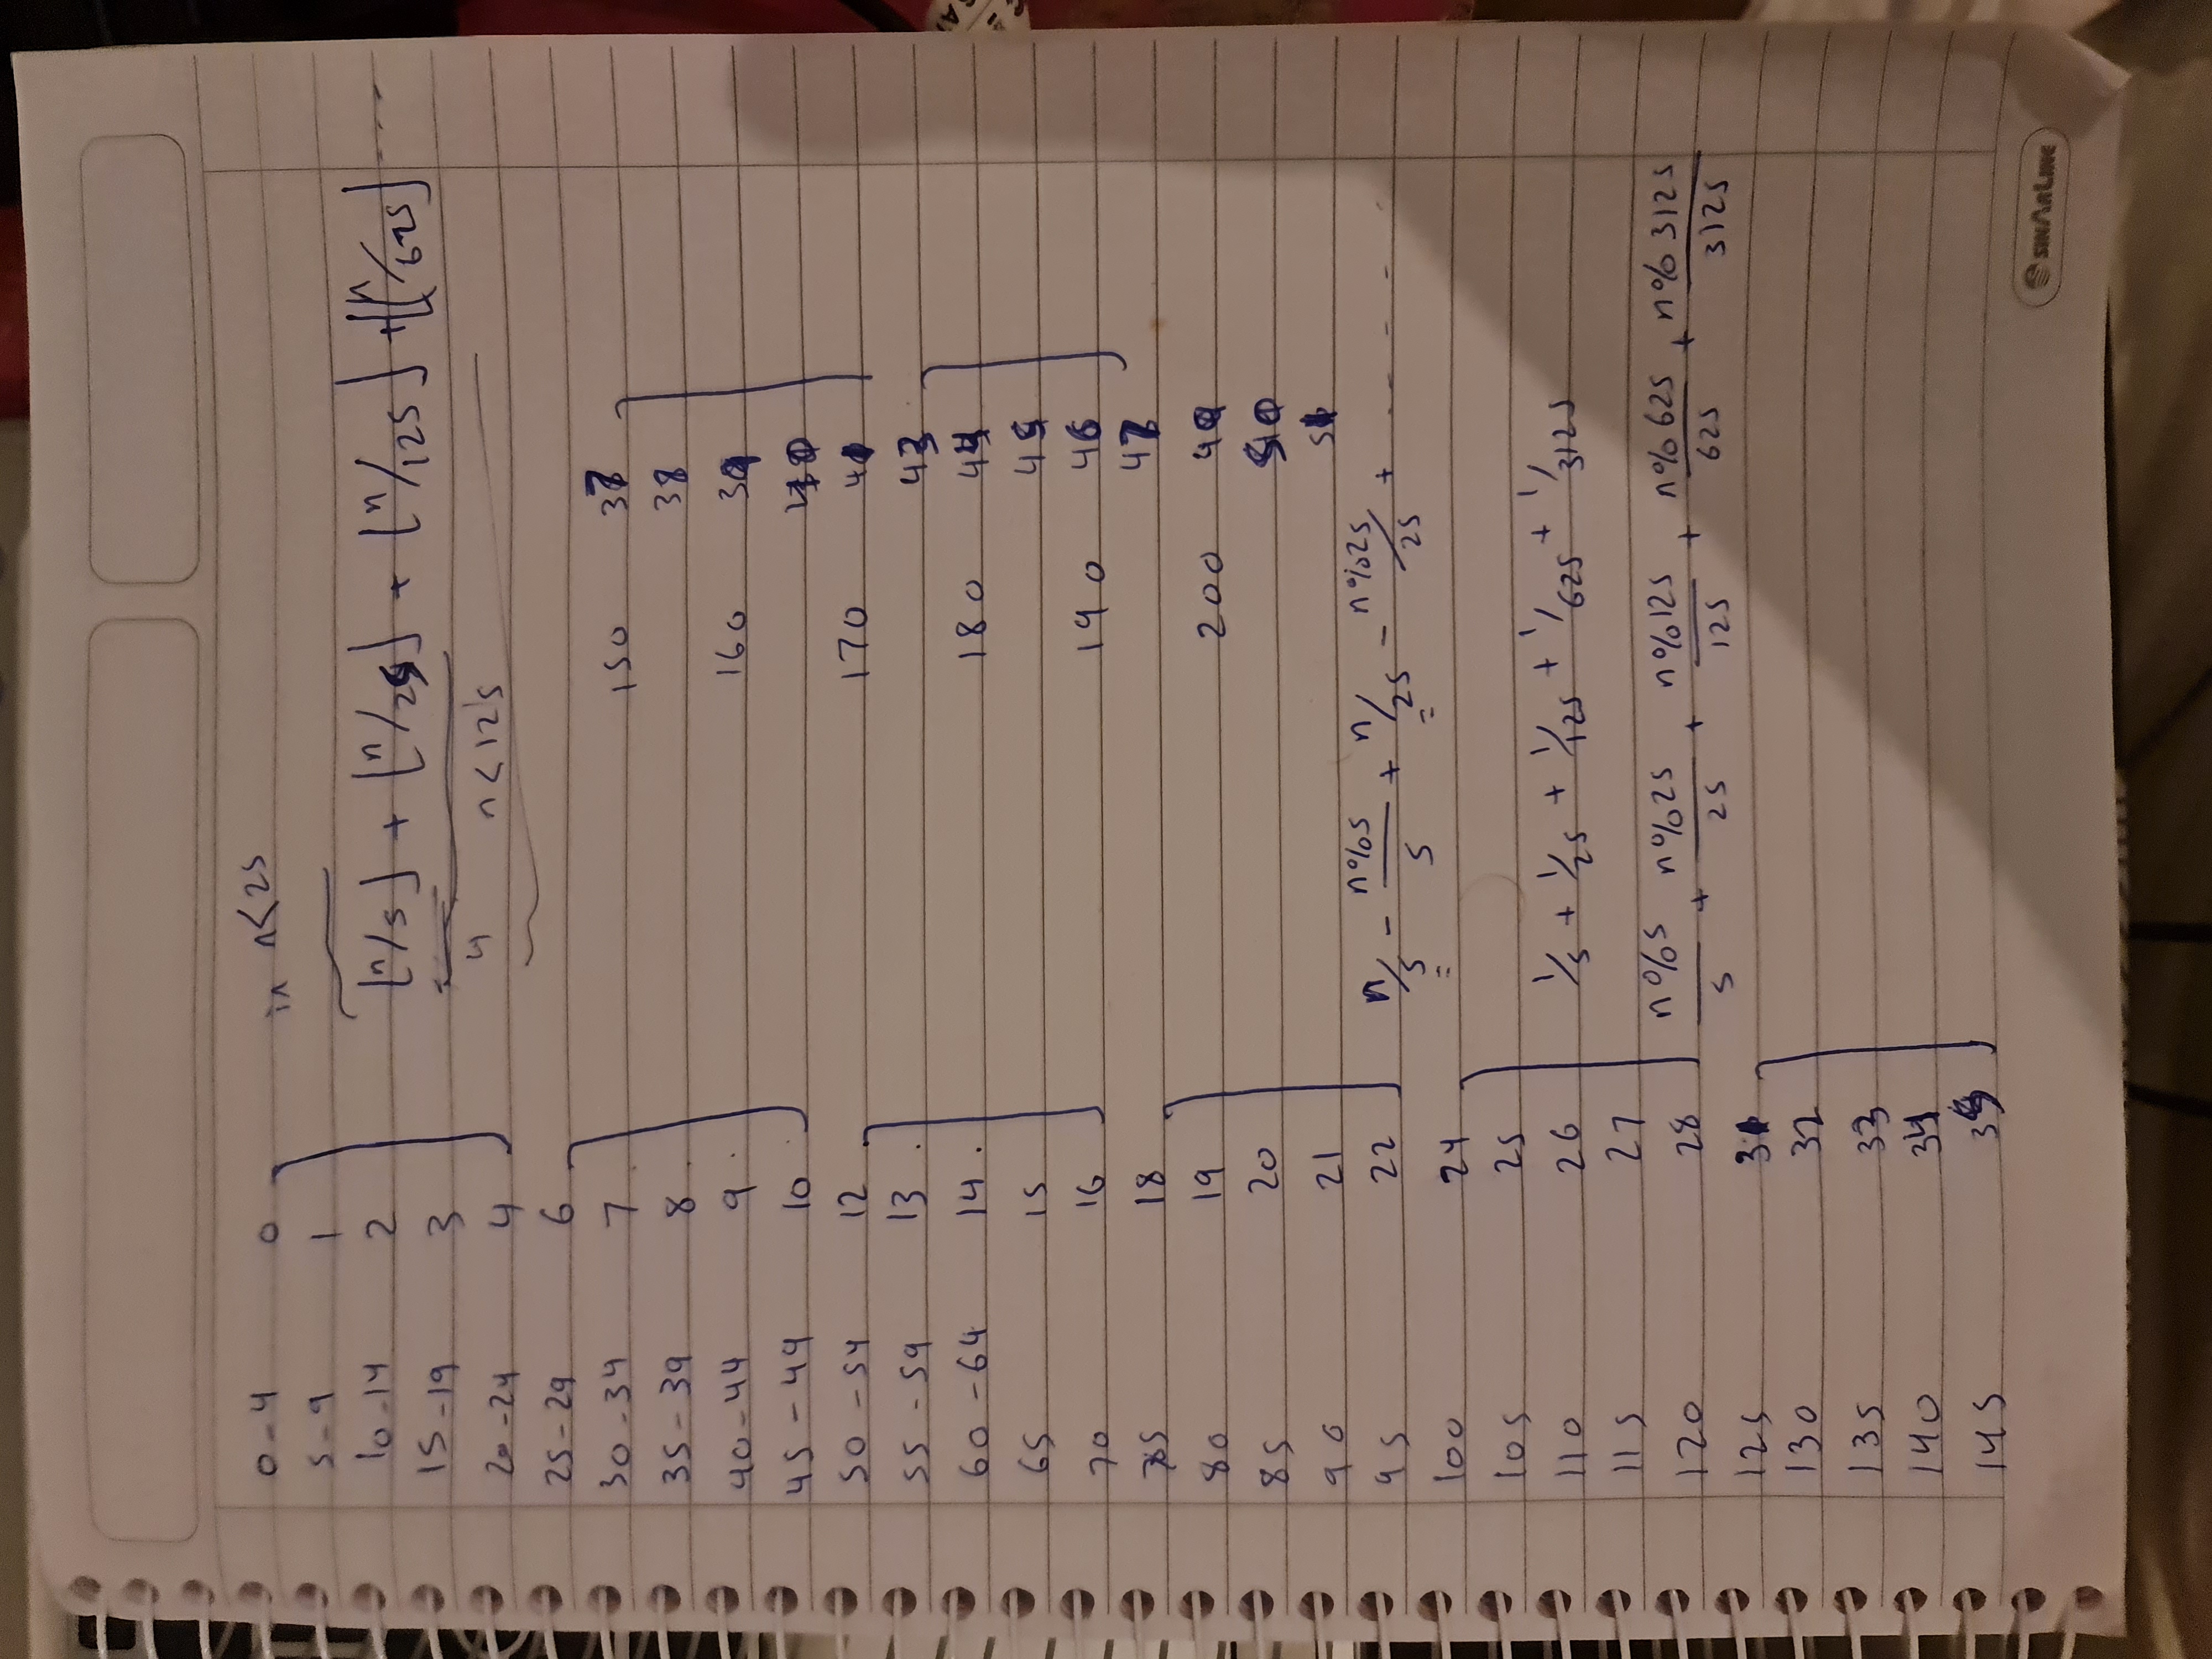 0-4 0
5-9 1
10-14 2
15-19 3
20-24 4
25-29 6
30-34 7
35-39 8
40-44 9
45-49 10
50-54 12
55-59 13
60-64 14
65 15
70 16
75 18
80 19
85 20
90 21
95 22
100 24
105 25
110 26
115 27
120 28
125 31
130 32
135 33
140 34
145 35
in n<25
⌊n/5⌋ + ⌊n/25⌋ + ⌊n/125⌋ + ⌊n/625⌋ ----
4 n<125
150 37
38
160 39
40
170 41
43
180 44
45
190 46
47
200 49
50
51
n/5 - n%5/5 + n/25 - n%25/25 + - - - -
1/5 + 1/25 + 1/125 + 1/625 + 1/3125
n%5/5 + n%25/25 + n%125/125 + n%625/625 + n%3125/3125
SINARLINE